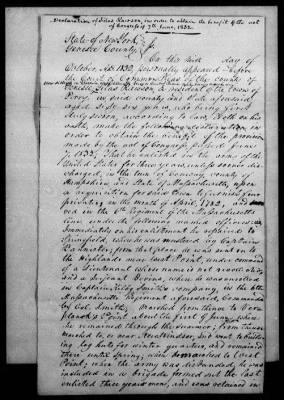 Declaration of Silas Rawson, in order to obtain the benefit of the act
of Congress of 7th June, 1832.
State of New York,
Genesee County, ss.
On this third day of
October, AD. 1832, personally appeared before
the Court of Common Pleas of the county of
Genesee, Silas Rawson, a resident of the town of
in said county and State aforesaid,
aged sixty six years, who being first
duly sworn, according to law, doth on his
oath, make the following declaration, in
order to obtain the benefit of the provision
made by the act of Congress passed June
7, 1832. That he enlisted in the army of the
United States for three years, unless sooner dis-
charged, in the town of Conway, county of
Hampshire, and State of Massachusetts, upon
a requisition for said town to furnish four
privates, in the month of April, 1782, and
ved in the 6th Regiment of the Massachusetts
line under the following named officers.
Immediately on his enlistment he repaired to
Springfield, where he was mustered by Captain
Bannister, from that place he was sent on to
the Highlands near West Point, under command
of a Lieutenant whose name is not recollected
and a Sergeant where he was enrolled
in Captain Smith's company, in the 6th
Massachusetts Regiment aforesaid, Commanded
by Col. Smith, marched from thence to Ver-
planck's Point about the first of where
he remained through the summer, from thence
marched to or near New Windsor, and went to build-
ing log huts for winter quarters, and remained
there until spring, when he marched to West
Point, when the army was disbanded, he was
included in a brigade formed out the last
enlisted three years men, and was retained in